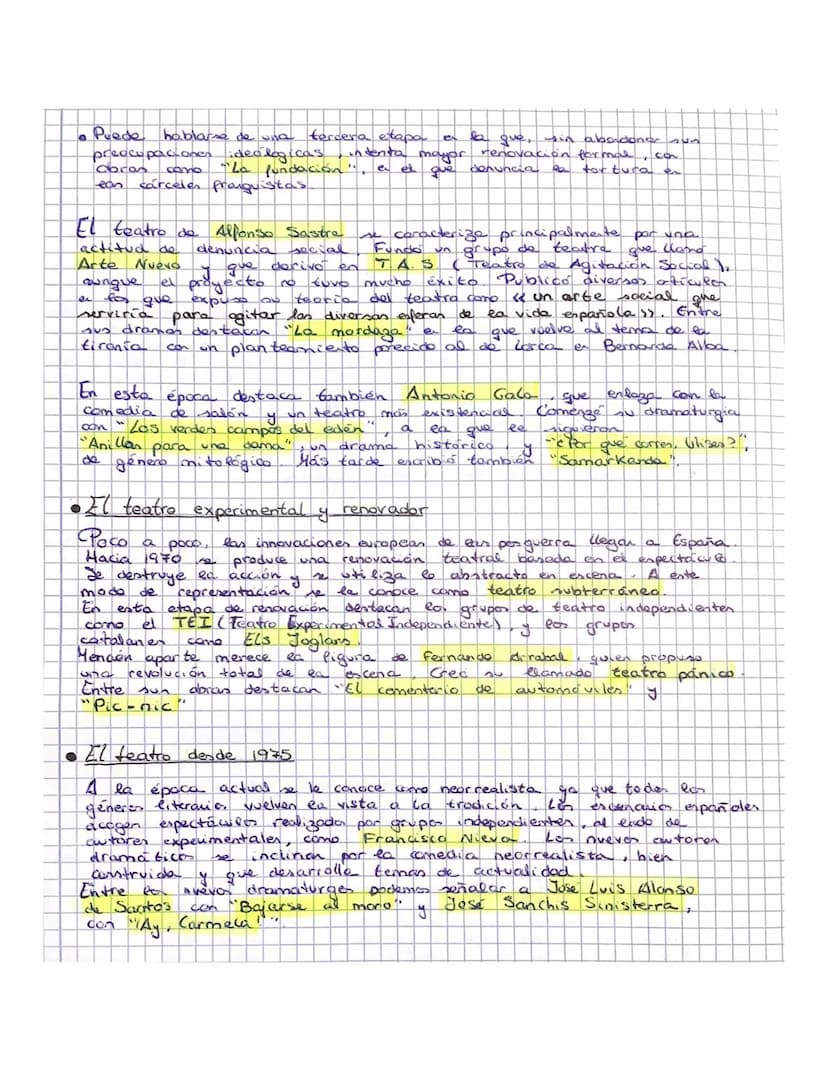 • Puede hablarse de una tercera etapa en la que, sin abandonar sus
preocupaciones ideológicas, intenta mayor renovación formal, con
obras como "La fundación", en el que denuncia la tortura en
las cárceles franquistas.
El teatro de Alfonso Sastre se caracteriza principalmente por una
actitud de denuncia social. Fundó un grupo de teatro que llamó
Arte Nuevo y que derivó en T.A.S (Teatro de Agitación Social),
aunque el proyecto no tuvo mucho éxito. Publicó diversos artículos
en los que expuso su teoría del teatro como << un arte social que
serviría para agitar las diversas esferas de la vida española >>. Entre
sus dramas destacan "La mordaza" en la que vuelve al tema de la
tiranía con un planteamiento parecido al de Lorca en Bernarda Alba.
En esta época destaca también Antonio Gala, que enlaza con la
comedia de salón y un teatro más existencial. Comenzó su dramaturgia
con "Los verdes campos del edén", a la que le siguieron
"Anillos para una dama", un drama histórico, y "¿Por qué corres, Ulises?",
de género mitológico. Más tarde escribió también "Samarkanda".
• El teatro experimental y renovador
Poco a poco, las innovaciones europeas de la posguerra llegan a España.
Hacia 1970 se produce una renovación teatral basada en el espectáculo.
Se destruye la acción y se utiliza lo abstracto en escena. A este
modo de representación se la conoce como teatro subterráneo.
En esta etapa de renovación destacan los grupos de teatro independientes
como el TEI (Teatro Experimental Independiente), y los grupos
catalanes como Els Joglars.
Mención aparte merece la figura de Fernando Arrabal, quien propuso
una revolución total de la escena. Creó su llamado teatro pánico.
Entre sus obras destacan "El cementerio de automóviles" y
"Pic-nic"
• El teatro desde 1975
A la época actual se le conoce como neorrealista ya que todos los
géneros literarios vuelven la vista a la tradición. Los escenarios españoles
acogen espectáculos realizados por grupos independientes, al lado de
autores experimentales, como Francisco Nieva. Los nuevos autores
dramáticos se inclinan por la comedia neorrealista, bien
construida y que desarrolla temas de actualidad.
Entre los nuevos dramaturgos podemos señalar a José Luis Alonso
de Santos con "Bajarse al moro" y José Sanchis Sinisterra,
con "¡Ay, Carmela!".